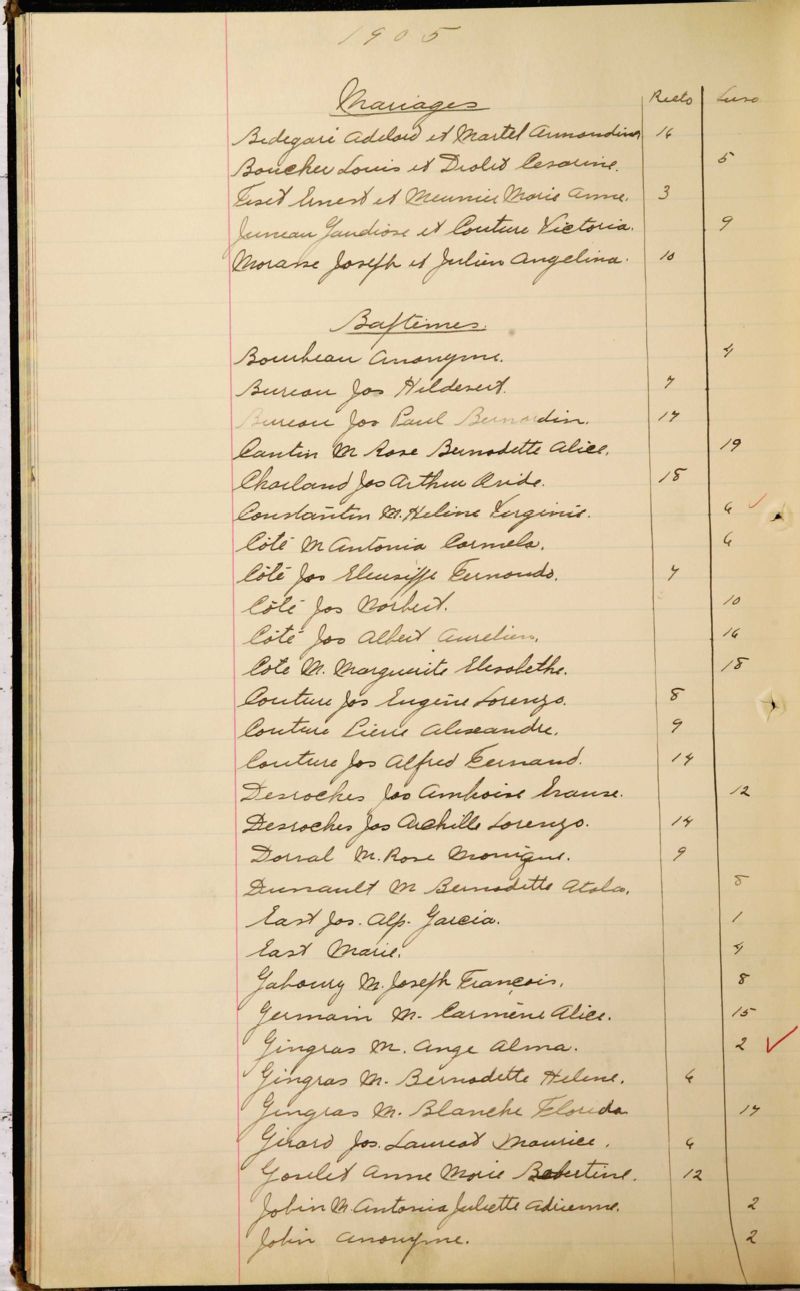 1905
Mariages Recto Verso
Bedegaré Adelard et Martel Armandine 16
Boucher Louis et Drolet Cesarine. 5
Fiset Ernest et Meunier Marie Anne. 3
Juneau Gaudiose et Couture Victoria. 9
Morasse Joseph et Julien Angelina. 10
Baptêmes.
Bourbeau Anonyme. 4
Bureau Jos Hildevert. 7
Bureau Jos Paul Bernardin. 17
Cantin M Rose Bernadette Alice. 19
Charland Jos Arthur Ovide. 18
Constantin M. Helène Virginie. 6
Côté M Antonia Carmela. 6
Côté Jos Eleusippe Fernando. 7
Côté Jos Norbert. 10
Côté Jos Albert Aurelien. 16
Coté M. Marguerite Elisabethe. 18
Couture Jos Eugène Lorenzo. 8
Couture Pierre Alexandre. 9
Couture Jos Alfred Fernand. 14
Desroches Jos Amboise 12
Desroches Jos Archille Lorenzo. 14
Dorval M. Rose Monique. 9
Dussault M Bernadette Atala. 8
East Jos. Alp. Garcia. 1
East Marie. 4
Gaboury M. Joseph François. 8
Germain M. Carmène Alice. 15
Gingras M. Ange Alma. 2
Gingras M. Bernadette Helene. 6
Gingras M. Blanche Florida 17
Girard Jos. Laureat Maurice. 6
Goselet Anne Marie Robertine. 12
Jobin M. Antonia Juliette Adrienne. 2
Jobin Anonyme. 2